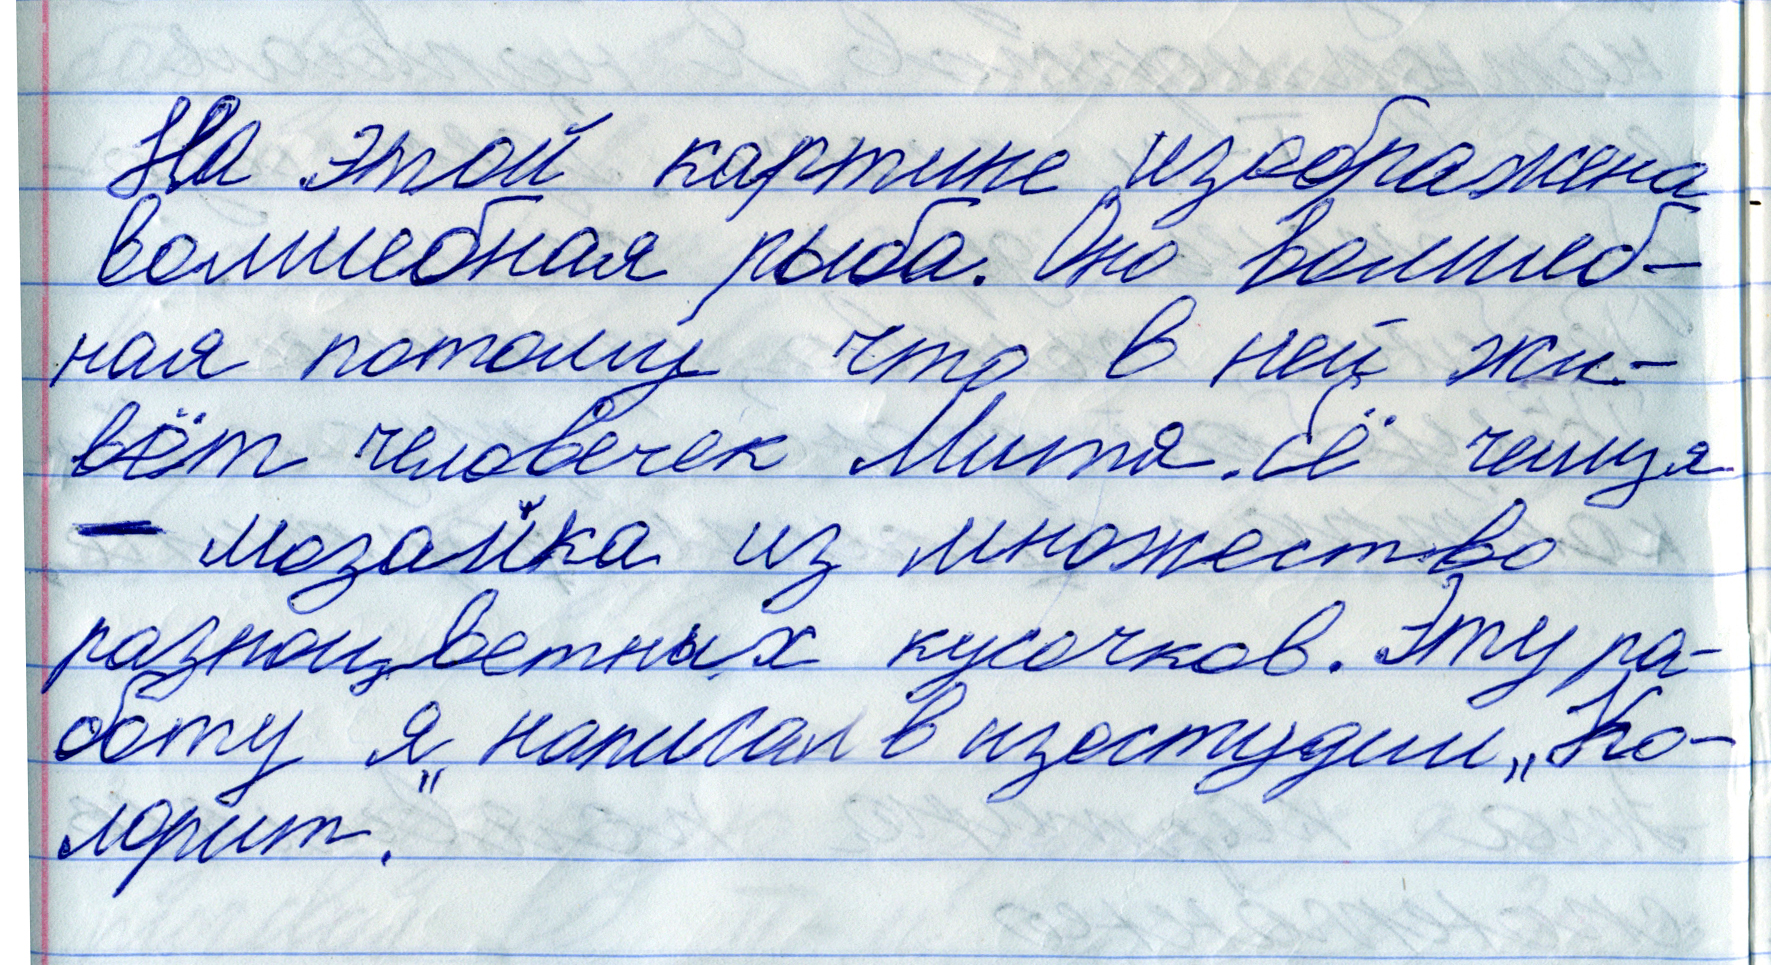 На этой картине изображена
волшебная рыба. Она волшеб-
ная потому что в ней жи-
вёт человечек Митя. Её чешуя
- мозайка из множество
разноцветных кусочков. Эту ра-
боту я написал в изостудии „Ко-
лорит."